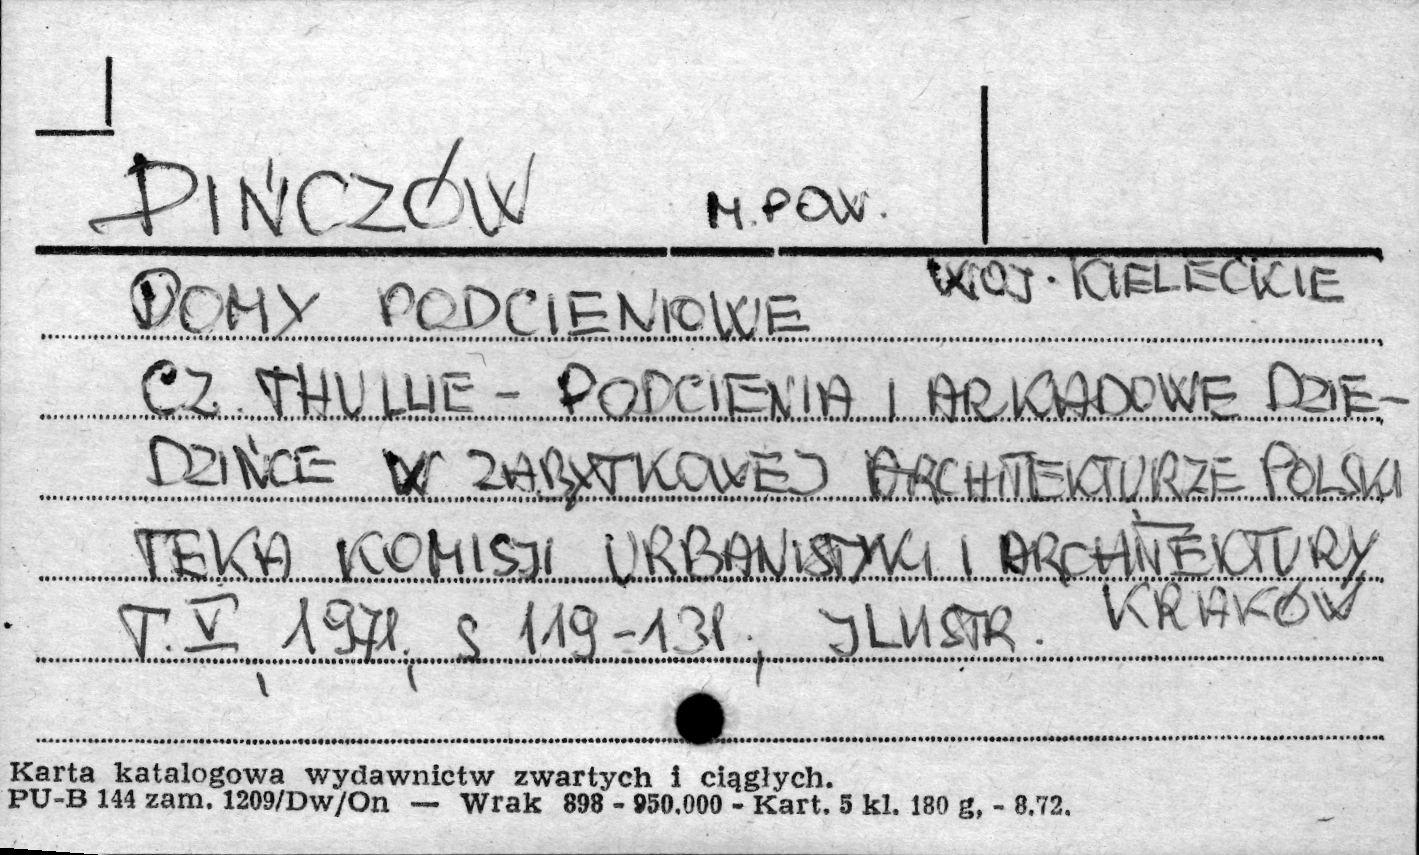 PIŃCZÓW M. POW.
WOJ. KIELECKIE
DOMY PODCIENIOWE
CZ. THULLIE - PODCIENIA I ARKADOWE DZIE-
DZIŃCE W ZABYTKOWEJ ARCHITEKTURZE POLSKI
TEKA KOMISJI URBANISTYKI I ARCHITEKTURY
KRAKÓW
T. V, 1971, S 119-131, ILUSTR.
Karta katalogowa wydawnictw zwartych i ciągłych.
PU-B 144 zam. 1209/Dw/On — Wrak 898 - 950.000 - Kart. 5 kl. 180 g, - 8.72.